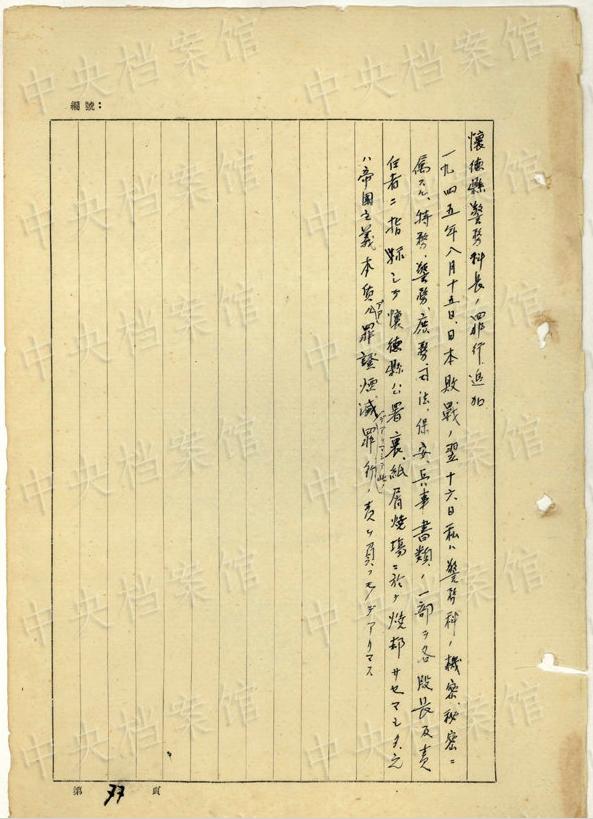 編號：
懷德縣警務科長ノ罪行追加
一九四五年八月十五日、日本敗戰ノ翌十六日私ハ警務科ノ機密、秘密ニ
属スル、特務、警務、庶務、司法、保安、兵事書類ノ一部ヲ各股長及責
任者ニ指揮シテ懷德縣公署裏、紙屑焼場ニ於テ焼却サセマシタ、之
ハ帝国主義本質ノ罪證煙滅罪行ノ責ヲ負フモノデアリマス
第 77 頁
中央档案馆